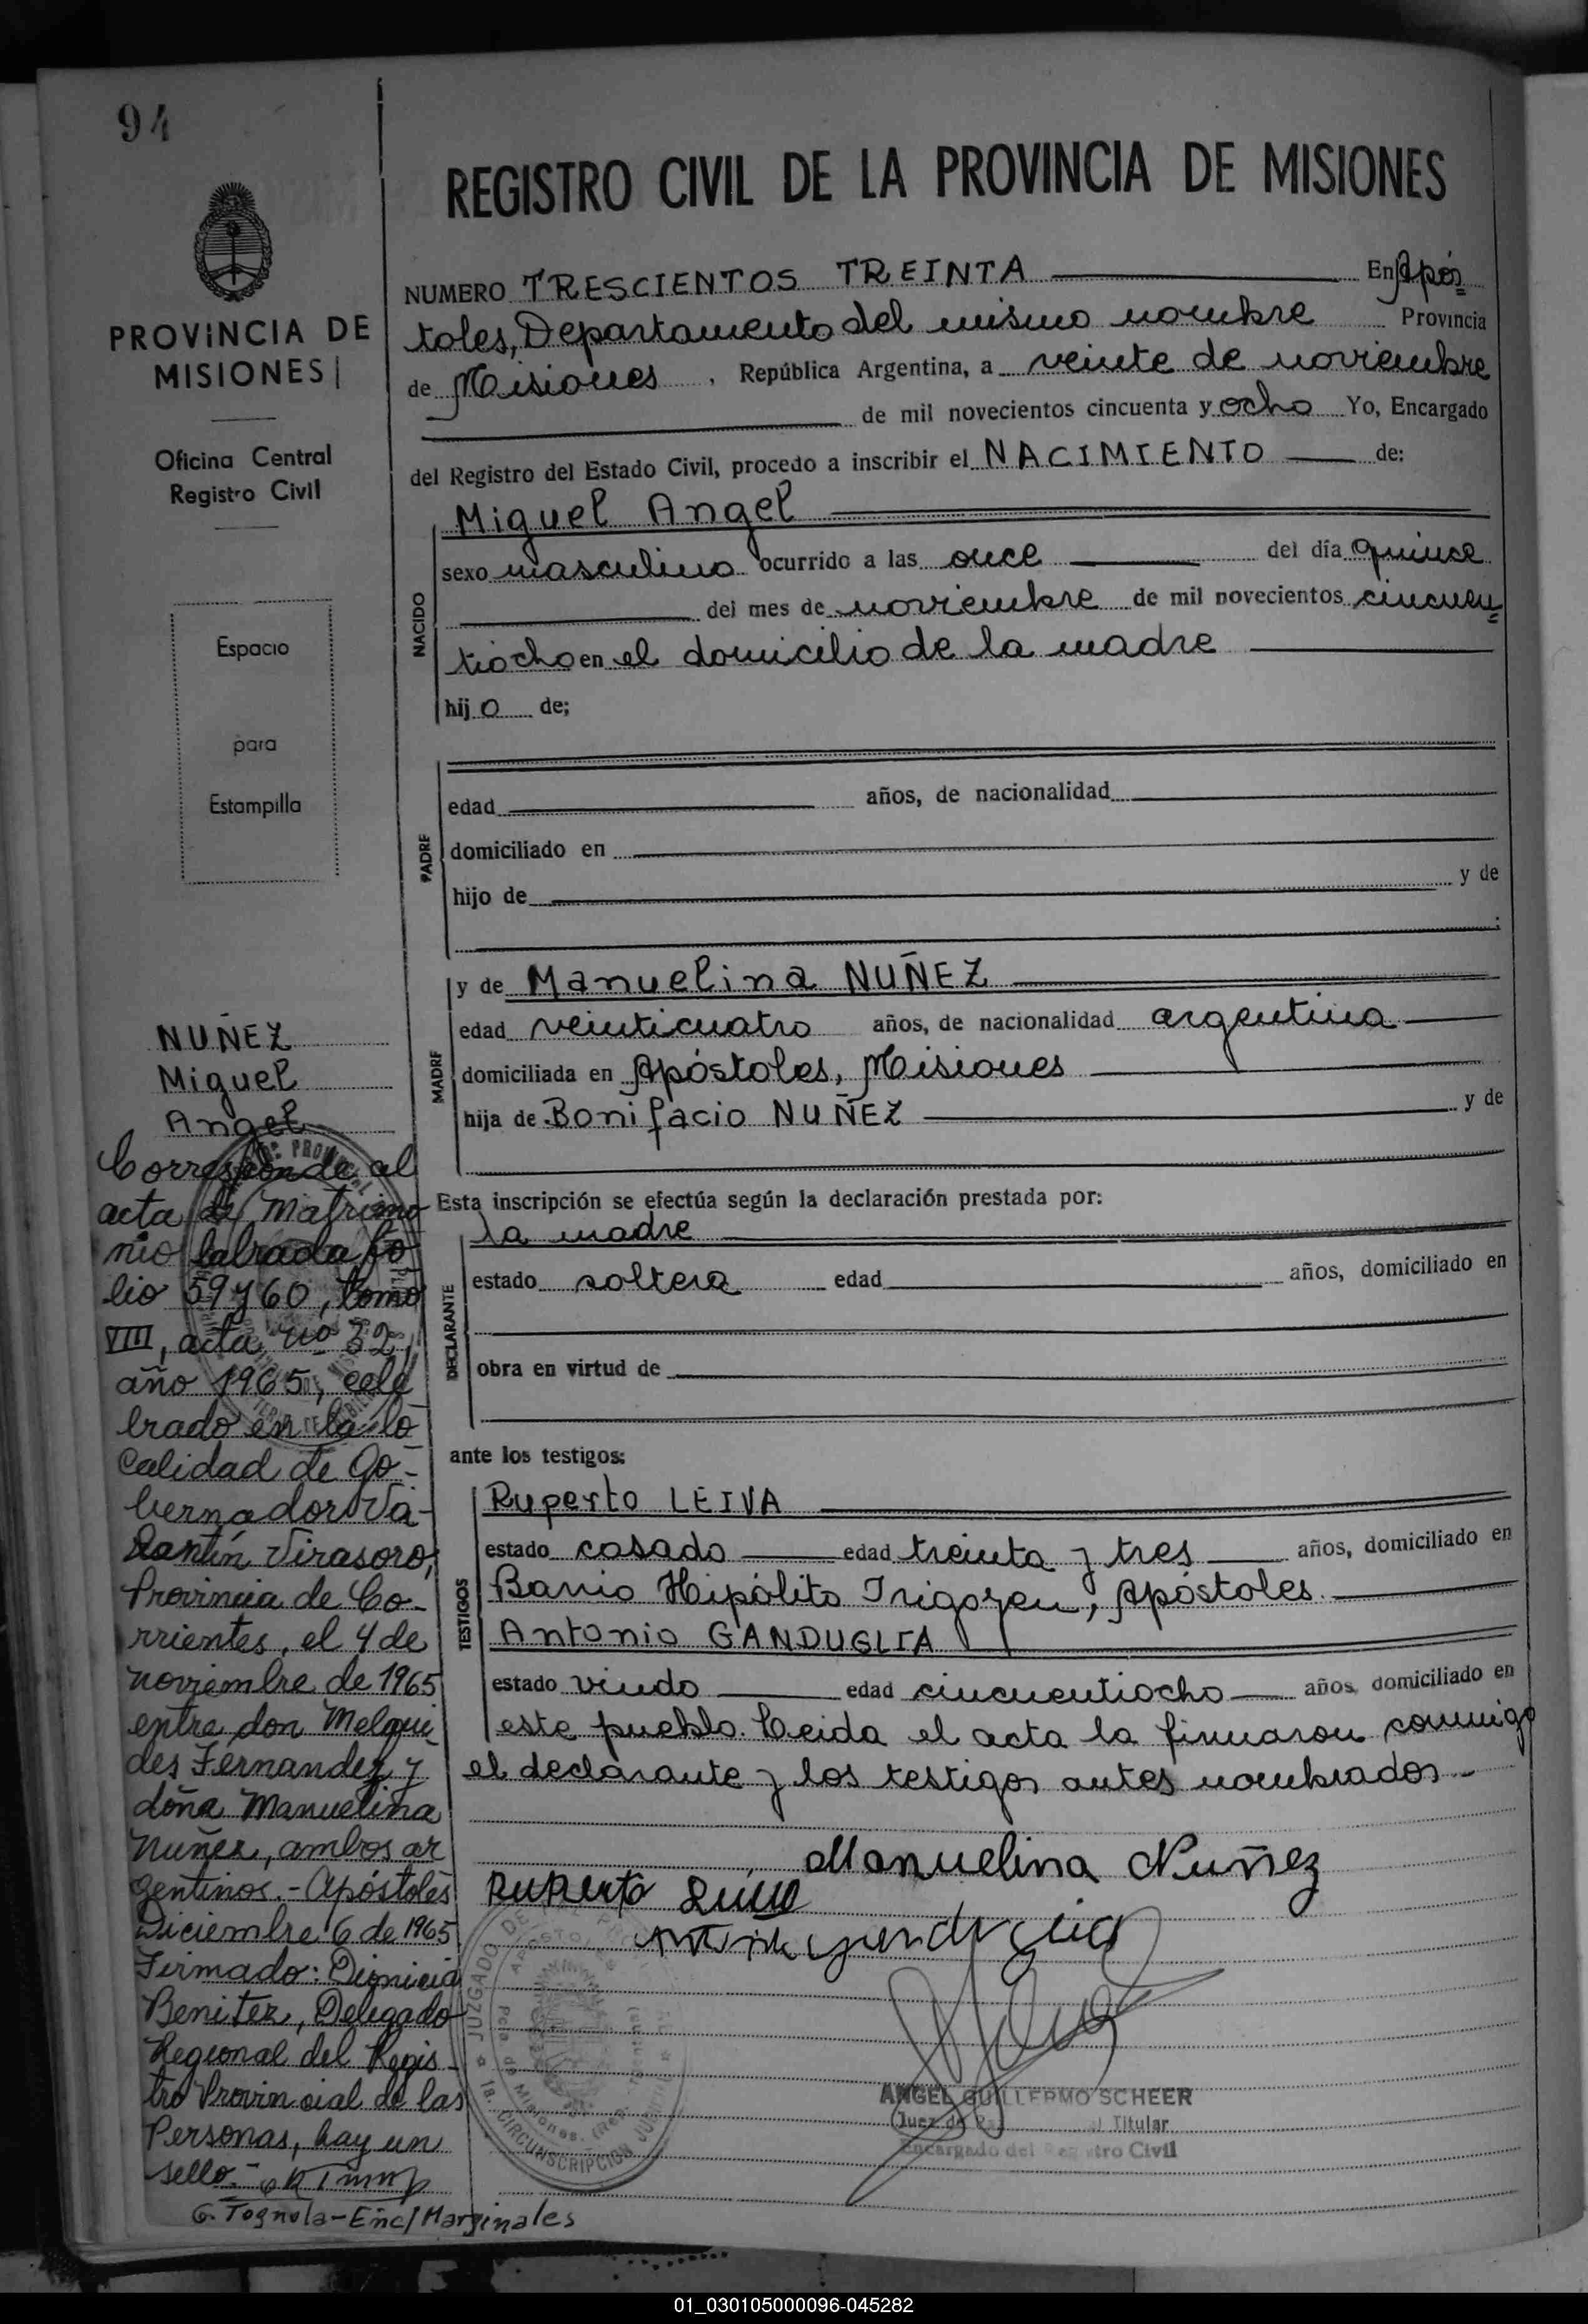 94
REGISTRO CIVIL DE LA PROVINCIA DE MISIONES
PROVINCIA DE
MISIONES
Oficina Central
Registro Civil
Espacio
para
Estampilla
NUMERO TRESCIENTOS TREINTA En Após=
toles, Departamento del mismo nombre Provincia
de Misiones, República Argentina, a veinte de noviembre
de mil novecientos cincuenta y ocho Yo, Encargado
del Registro del Estado Civil, procedo a inscribir el NACIMIENTO de:
NACIDO
Miguel Angel
sexo masculino ocurrido a las once del día quince
del mes de noviembre de mil novecientos cincuen=
tiocho en el domicilio de la madre
hijo de;
PADRE
edad años, de nacionalidad
domiciliado en
hijo de y de
MADRE
y de Manuelina NUÑEZ
edad veinticuatro años, de nacionalidad argentina
domiciliada en Apóstoles, Misiones
hija de Bonifacio NUÑEZ y de
Esta inscripción se efectúa según la declaración prestada por:
DECLARANTE
la madre
estado soltera edad años, domiciliado en
obra en virtud de
ante los testigos:
TESTIGOS
Ruperto LEIVA
estado casado edad treinta y tres años, domiciliado en
Barrio Hipólito Irigoyen, Apóstoles.
Antonio GANDUGLIA
estado viudo edad cincuentiocho años, domiciliado en
este pueblo. Leida el acta la firmaron conmigo
el declarante y los testigos antes nombrados.-
Manuelina Nuñez
Ruperto
ANGEL GUILLERMO SCHEER
Juez de Titular
Encargado del Registro Civil
JUZGADO DE
1a. CIRCUNSCRIPCION
NUÑEZ
Miguel
Angel
Corresponde al
acta de Matrimo
nio labrada fo
lio 59 y 60, tomo
VIII, acta nº 32,
año 1965, cele
brado en la lo
calidad de Go-
bernador Va-
lantín Virasoro,
Provincia de Co-
rrientes, el 4 de
noviembre de 1965
entre don Melqui_
des Fernandez y
doña Manuelina
Nuñez, ambos ar
gentinos.- Apóstoles
Diciembre 6 de 1965
Firmado: Dionicia
Benitez, Delegado
Regional del Regis-
tro Provincial de las
Personas, hay un
sello-
G. Tognola-Enc/Marginales
01_030105000096-045282